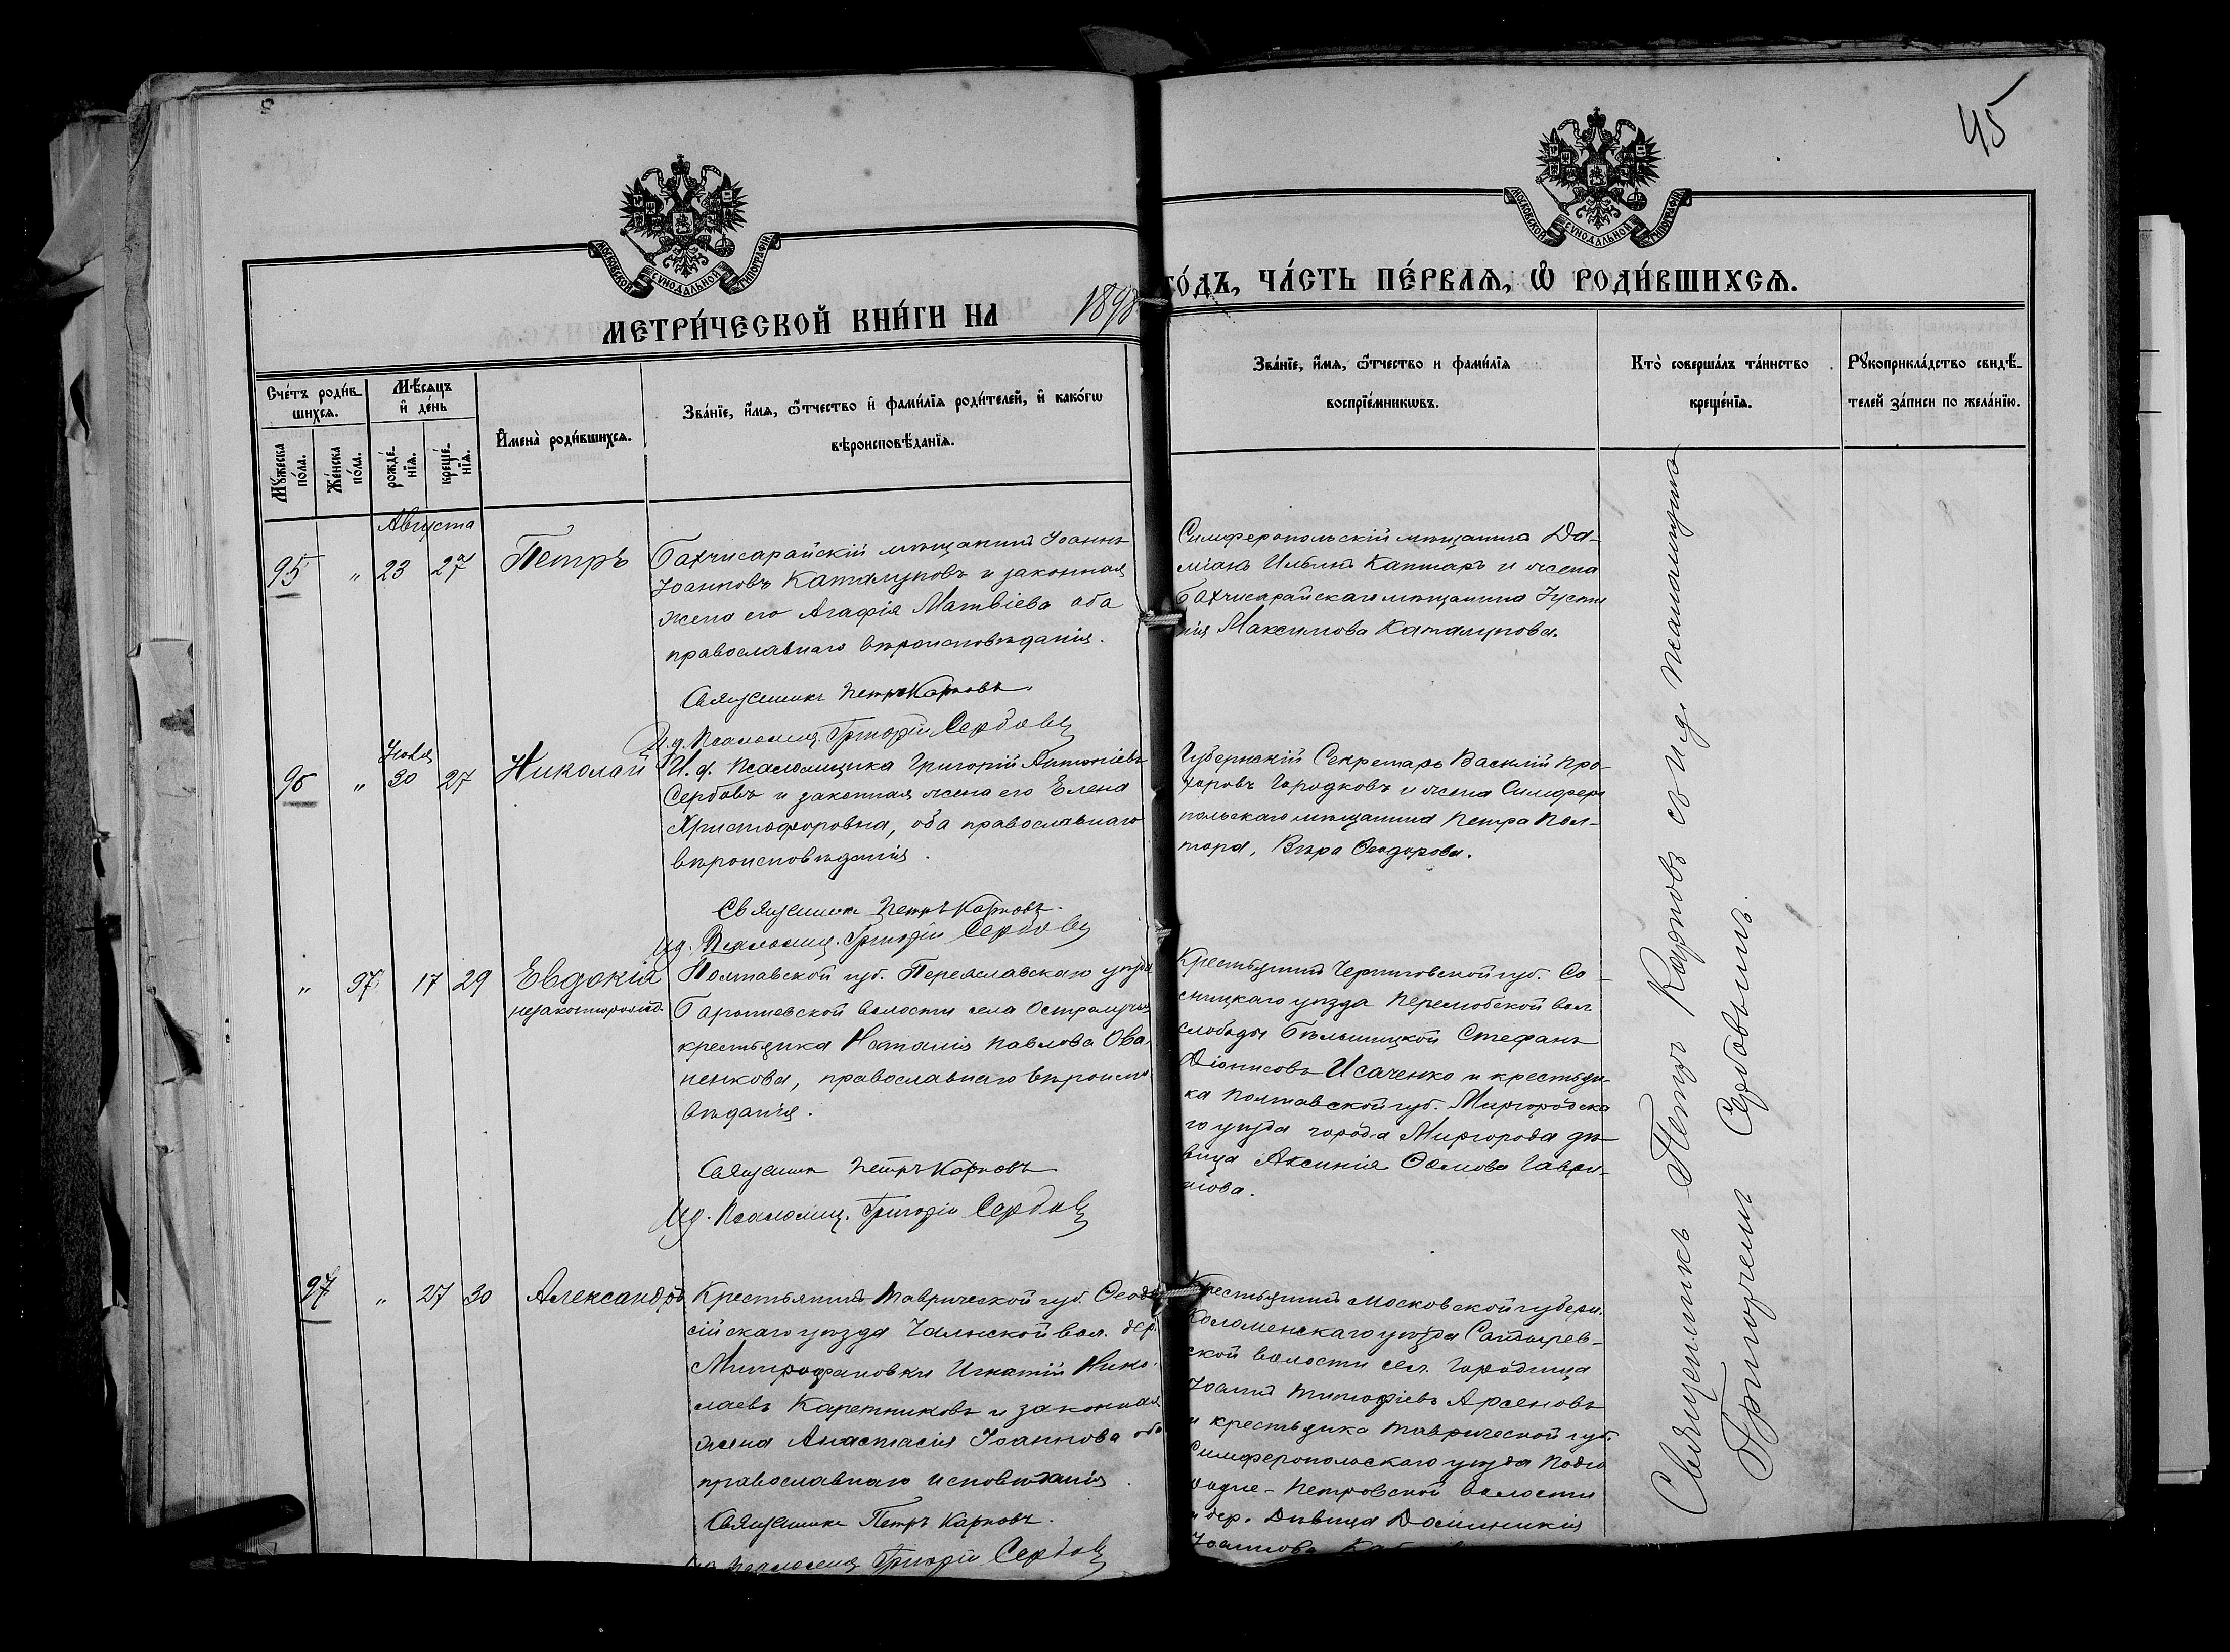 45
МОСКОВСКОЙ СУНОДАЛЬНОЙ ТИПОГРАФІИ
МОСКОВСКОЙ СУНОДАЛЬНОЙ ТИПОГРАФІИ
МЕТРИ́ЧЕСКОЙ КНИ́ГИ НА 1898
ГО́ДЪ, ЧА́СТЬ ПЕ́РВАЯ, Ѿ РОДИ́ВШИХСЯ.
Сче́тъ роди́в-
шихся.
Му́жеска по́ла.
Же́нска по́ла.
Мѣ́сяцъ
и́ де́нь
рожде́-
нія.
креще́-
нія.
И҆мена̀ роди́вшихся.
Зва́нїе, и҆́мя, ѻ҆́тчество и҆ фами́лїя роди́телей, и҆ како́гѡ
вѣроисповѣ́данїя.
Зва́нїе, и҆́мя, ѻ҆́тчество и фами́лїя
воспрїе́мникѡвъ.
Кто̀ соверша́лъ та́инство
креще́нїя.
Рꙋкоприкла́дство свидѣ́-
телей за́писи по жела́нїю.
Августа
95 " 23 27 Петръ
Бахчисарайскій мѣщанинъ Іоаннъ
Іоанновъ Каталуповъ и законная
жена его Агафія Матвіева оба
православнаго вѣроисповѣданія.
Священникъ Петръ Карповъ.
И. д. Псаломщ. Григорій Сербовъ
Симферопольскій мѣщанинъ Да-
міанъ Ильинъ Каптаръ и жена
Бахчисарайскаго мѣщанина Іусти
нія Максимова Каталупова.
Іюля
96 " 30 27 Николай
И. д. Псаломщика Григорій Антоніевъ
Сербовъ и законная жена его Елена
Христофоровна, оба православнаго
вѣроисповѣданія.
Священникъ Петръ Карповъ.
И д. Псаломщ. Григорій Сербовъ
Губернскій Секретарь Василій Про-
хоровъ Городковъ и жена Симферо
польскаго мѣщанина Петра Пол-
тора, Вѣра Ѳеодорова.
" 97 17 29 Евдокія
незаконнорожд.
Полтавской губ. Переяславскаго уѣзда
волости села
крестьянка Наталія Павлова Ова
ненкова, православнаго вѣроиспо
вѣданія.
Священникъ Петръ Карповъ
И д. Псаломщ. Григорій Сербовъ
Крестьянинъ Черниговской губ. Со-
сницкаго уѣзда вол.
слободы Стефанъ
Діонисовъ Исаченко и крестьян-
ка Полтавской губ. Миргородска
го уѣзда города Миргорода дѣ-
вица Аксинія Гаври-
лова.
97 " 27 30 Александръ
Крестьянинъ Таврической губ. Ѳеодо
сійскаго уѣзда вол. дер.
Митрофановки Игнатій Нико-
лаевъ Каретниковъ и законная
жена Анастасія Іоаннова оба
православнаго исповѣданія.
Священникъ Петръ Карповъ.
И д. Псаломщ Григорій Сербовъ
Крестьянинъ Московской губерн.
Коломенскаго уѣзда
ской волости сел. Городища
Іоаннъ Тимофіевъ Арсеновъ
и крестьянка Таврической губ.
Симферопольскаго уѣзда Подго
родне-Петровской волости
и дер. Дѣвица Домникія
Іоаннова
Священникъ Петръ Карповъ съ и. д. псаломщика
Григоріемъ Сербовымъ.